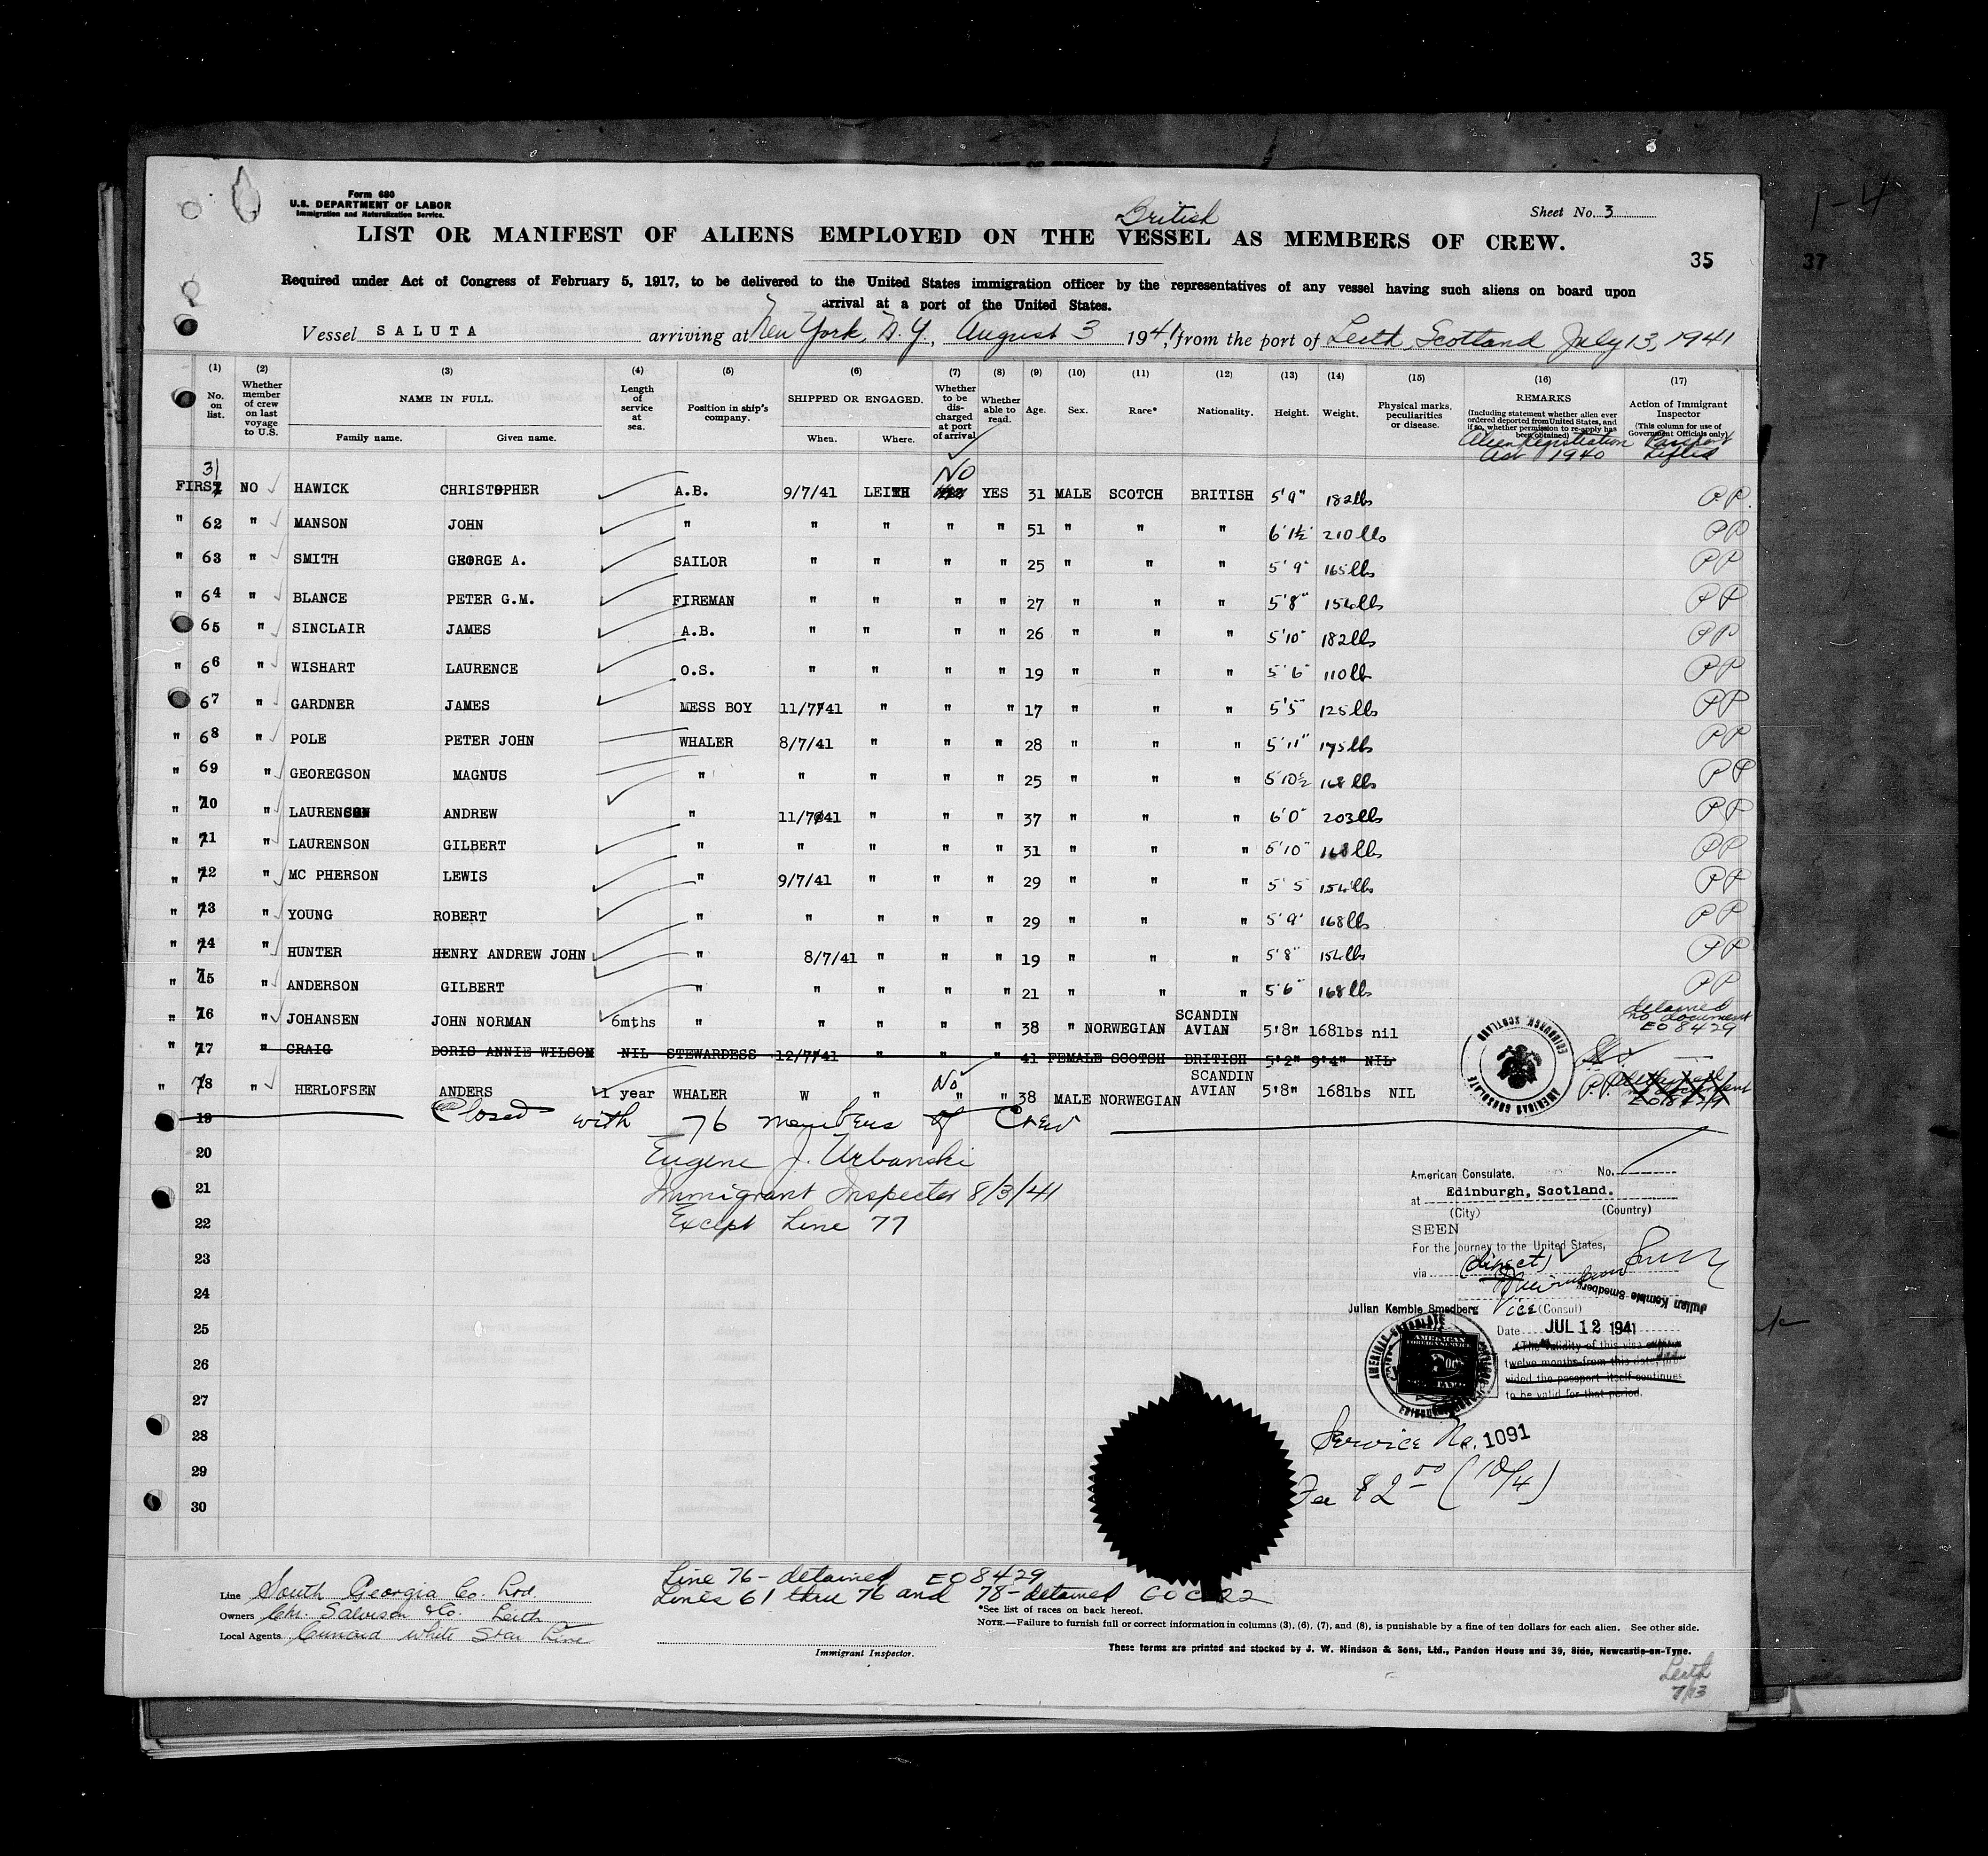 Form 680
U.S. DEPARTMENT OF LABOR
Immigration and Naturalization Service.
British
Sheet No. 3
LIST OR MANIFEST OF ALIENS EMPLOYED ON THE VESSEL AS MEMBERS OF CREW.
35
37
1-4
Required under Act of Congress of February 5, 1917, to be delivered to the United States immigration officer by the representatives of any vessel having such aliens on board upon
arrival at a port of the United States.
Vessel SALUTA arriving at New York, N.Y., August 3 1941, from the port of Leith, Scotland July 13, 1941
(1) No. on list. (2) Whether member of crew on last voyage to U.S. (3) NAME IN FULL. Family name. Given name. (4) Length of service at sea. (5) Position in ship's company. (6) SHIPPED OR ENGAGED. When. Where. (7) Whether to be discharged at port of arrival (8) Whether able to read. (9) Age. (10) Sex. (11) Race* (12) Nationality. (13) Height. (14) Weight. (15) Physical marks, peculiarities or disease. (16) REMARKS (Including statement whether alien ever ordered deported from United States, and if so, whether permission to re-apply has been obtained) (17) Action of Immigrant Inspector (This column for use of Government Officials only)
Alien Registration Act 1940 Passport Lifted
FIRST NO HAWICK CHRISTOPHER A.B. 9/7/41 LEITH No YES 31 MALE SCOTCH BRITISH 5'9" 182lbs PP
" 62 " MANSON JOHN " " " " " 51 " " " 6'1½ 210lbs PP
" 63 " SMITH GEORGE A. SAILOR " " " " 25 " " " 5'9" 165lbs PP
" 64 " BLANCE PETER G.M. FIREMAN " " " " 27 " " " 5'8" 154lbs PP
65 " SINCLAIR JAMES A.B. " " " " 26 " " " 5'10" 182lbs PP
" 66 " WISHART LAURENCE O.S. " " " " 19 " " " 5'6" 110lb PP
67 " GARDNER JAMES MESS BOY 11/7/41 " " " 17 " " " 5'5" 125lbs PP
" 68 " POLE PETER JOHN WHALER 8/7/41 " " " 28 " " " 5'11" 175lbs PP
" 69 " GEOREGSON MAGNUS " " " " " 25 " " " 5'10½ 168lbs PP
" 70 " LAURENSON ANDREW " 11/7/41 " " " 37 " " " 6'0" 203lbs PP
" 71 " LAURENSON GILBERT " " " " " 31 " " " 5'10" 168lbs PP
" 72 " MC PHERSON LEWIS " 9/7/41 " " " 29 " " " 5'5 154lbs PP
" 73 " YOUNG ROBERT " " " " " 29 " " " 5'9' 168lbs PP
" 74 " HUNTER HENRY ANDREW JOHN " 8/7/41 " " " 19 " " " 5'8" 154lbs PP
" 75 " ANDERSON GILBERT " " " " " 21 " " " 5'6" 168lbs PP
" 76 " JOHANSEN JOHN NORMAN 6mths " " " " " 38 " NORWEGIAN SCANDIN AVIAN 5'8" 168lbs nil detained no document EO 8429
" 77 " CRAIG DORIS ANNIE WILSON NIL STEWARDESS 12/7/41 " " " 41 FEMALE SCOTSH BRITISH 5'2" 9'4" NIL
" 78 " HERLOFSEN ANDERS 1 year WHALER W " No " " 38 MALE NORWEGIAN SCANDIN AVIAN 5'8" 168lbs NIL P.P.
AMERICAN CONSULATE EDINBURGH, SCOTLAND
19 Closed with 76 members of Crew
20 Eugene J. Urbanski
21 Immigrant Inspector 8/3/41
22 Except Line 77
23
24
25
26
27
28
29
30
American Consulate. No.
at Edinburgh, Scotland.
(City) (Country)
SEEN
For the journey to the United States,
via (direct)
Julian Kemble Smedberg
Julian Kemble Smedberg Vice (Consul)
Date JUL 12 1941
(The validity of this visa
twelve months from this date, pro-
vided the passport itself continues
to be valid for that period.
Service No. 1091
Fee $2.00 (10/4)
Line 76 - detained EO 8429
Lines 61 thru 76 and 78 - detained
Line South Georgia Co. Ltd.
Owners Chr. Salvesen & Co. Leith
Local Agents Cunard White Star Line
Immigrant Inspector.
*See list of races on back hereof.
NOTE.—Failure to furnish full or correct information in columns (3), (6), (7), and (8), is punishable by a fine of ten dollars for each alien. See other side.
These forms are printed and stocked by J. W. Hindson & Sons, Ltd., Pandon House and 39, Side, Newcastle-on-Tyne.
Leith
7/13